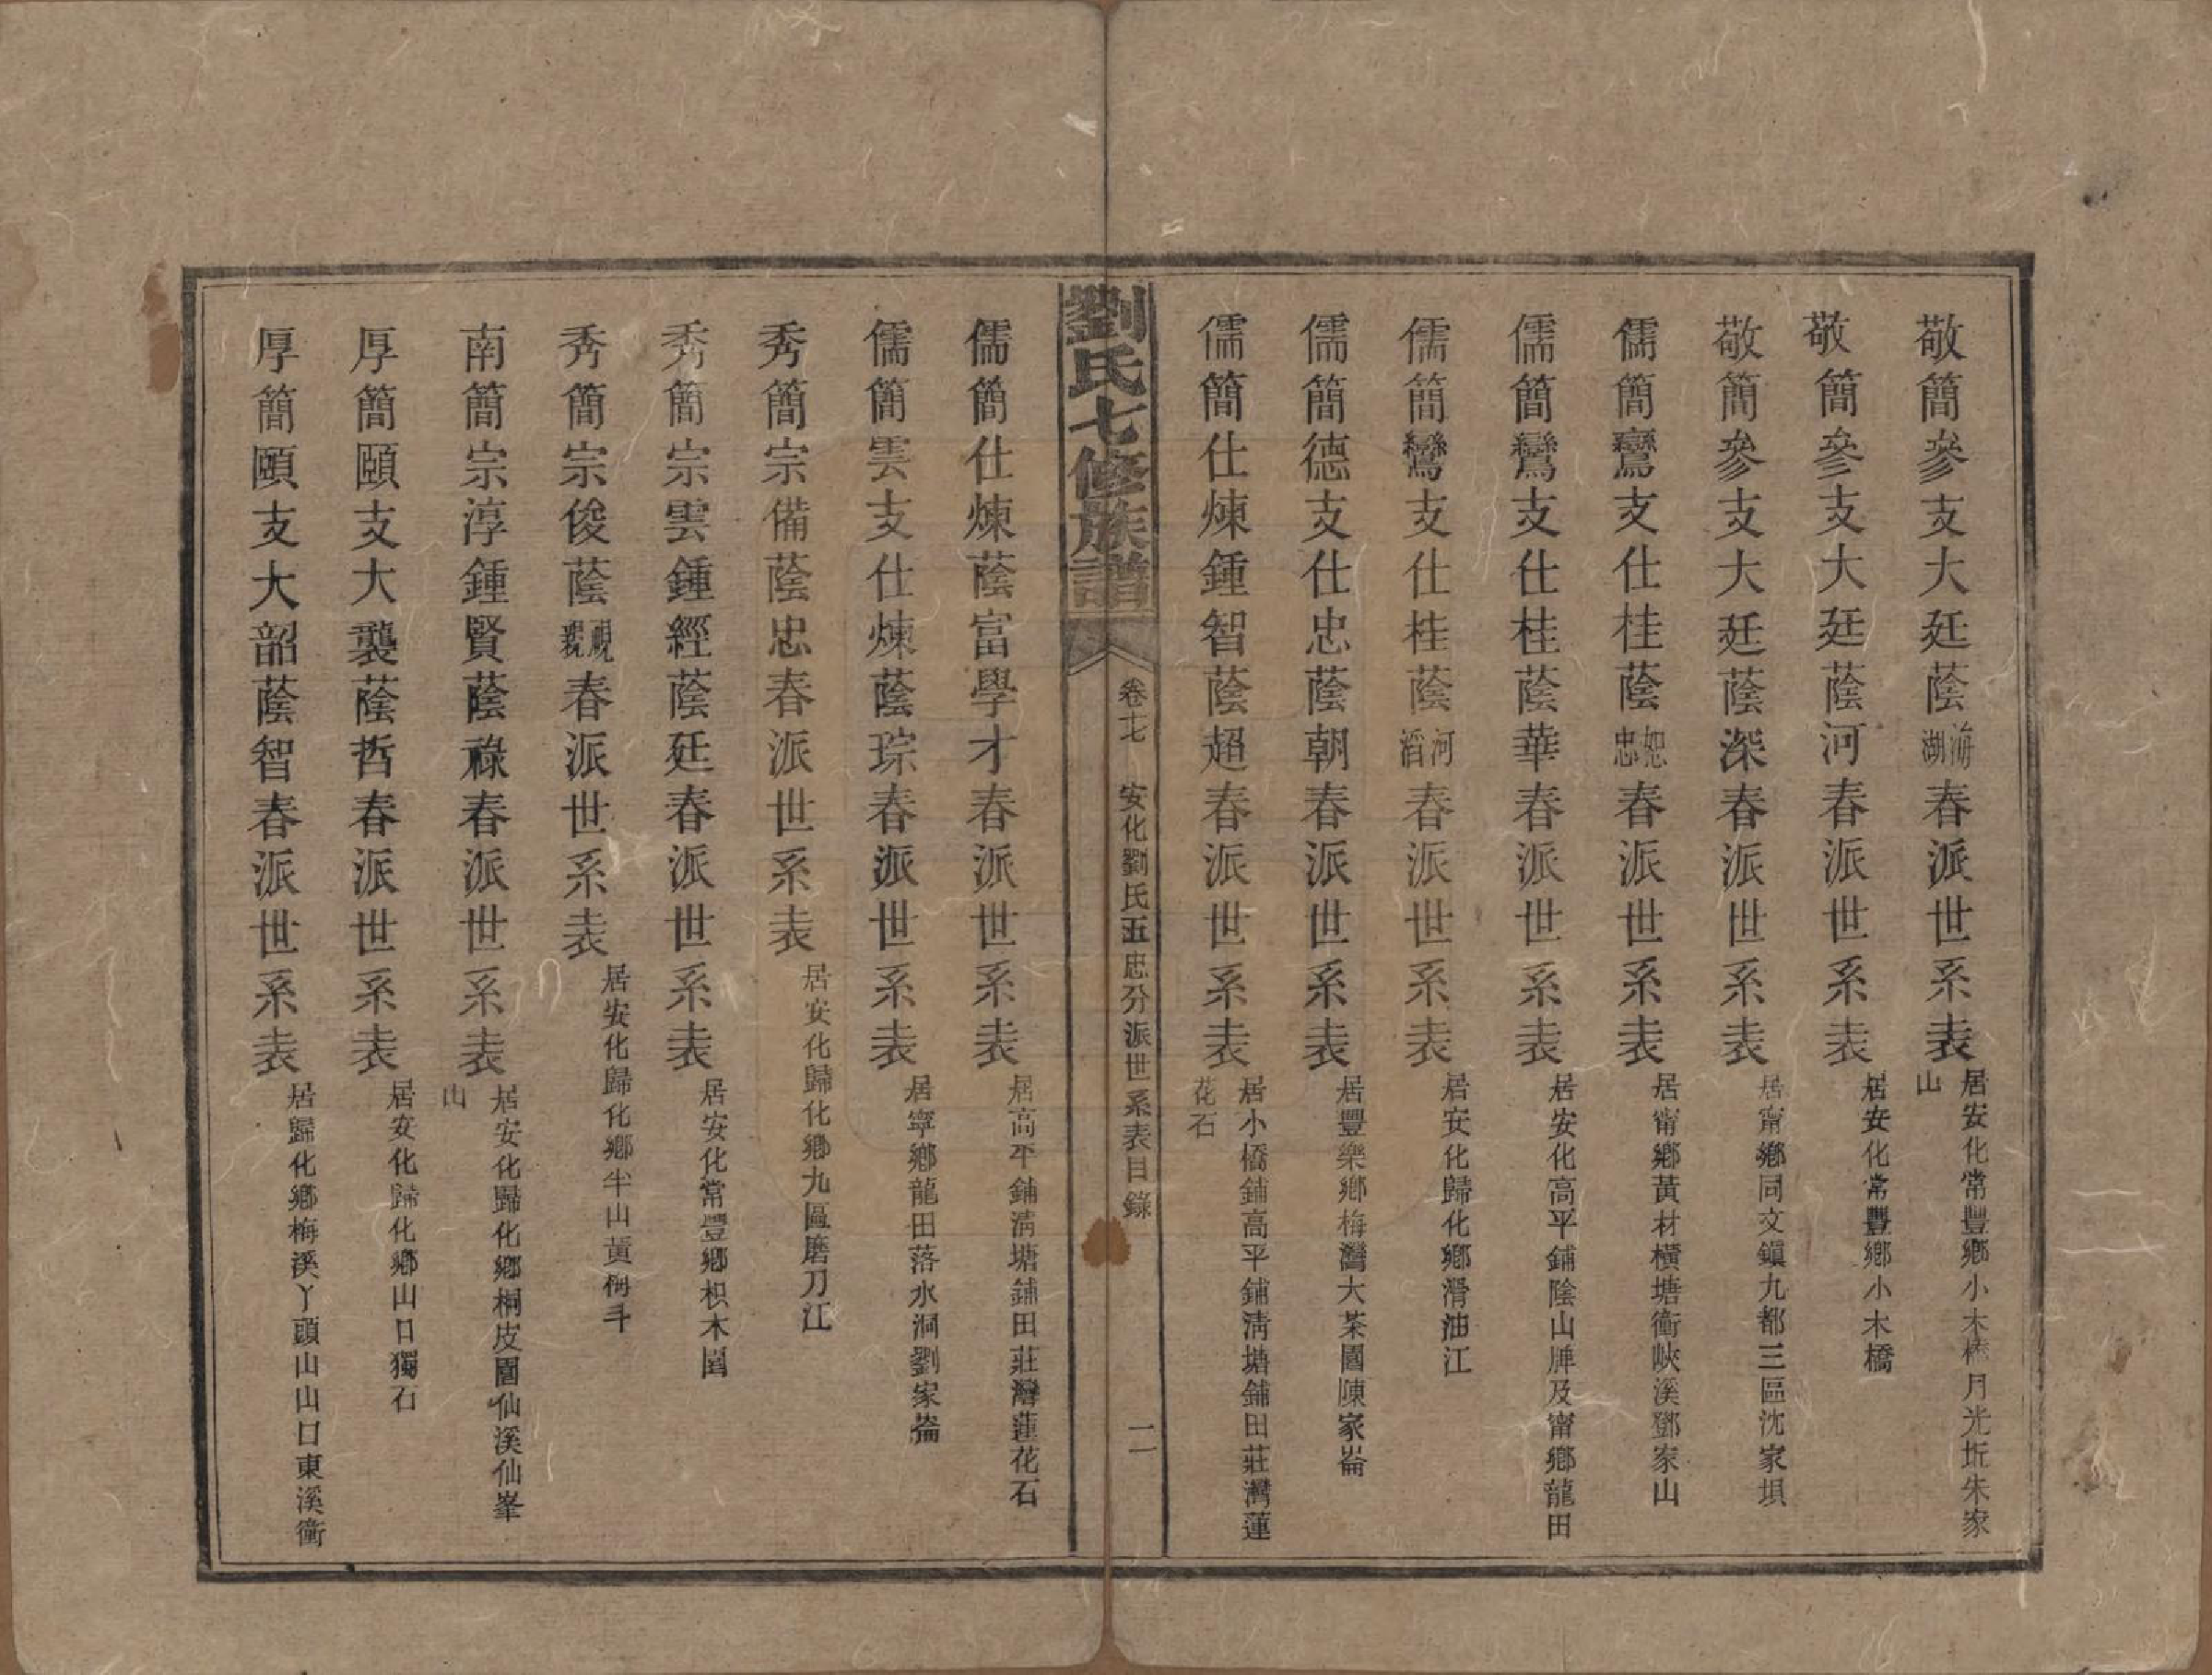 敬簡參支大廷蔭海湖春派世系表 居安化常豐鄉小木橋月光坵朱家山
敬簡參支大廷蔭河春派世系表 居安化常豐鄉小木橋
敬簡參支大廷蔭深春派世系表 居甯鄉同文鎭九都三區沈家垻
儒簡鸞支仕桂蔭恕忠春派世系表 居甯鄉黃材橫塘衝峽溪鄧家山
儒簡鸞支仕桂蔭華春派世系表 居安化高平鋪陰山牌及甯鄉龍田
儒簡鸞支仕桂蔭河滔春派世系表 居安化歸化鄉滑油江
儒簡德支仕忠蔭朝春派世系表 居豐樂鄉梅灣大茶園陳家崙
儒簡仕煉鍾智蔭超春派世系表 居小橋鋪高平鋪淸塘鋪田莊灣蓮花石
劉氏七修族譜 卷十七 安化劉氏五忠分派世系表目錄 二
儒簡仕煉蔭富學才春派世系表 居高平鋪淸塘鋪田莊灣蓮花石
儒簡雲支仕煉蔭琮春派世系表 居寧鄉龍田落水洞劉家崙
秀簡宗備蔭忠春派世系表 居安化歸化鄉九區磨刀江
秀簡宗雲鍾經蔭廷春派世系表 居安化常豐鄉枳木園
秀簡宗俊蔭覲親春派世系表 居安化歸化鄉半山黃梅斗
南簡宗淳鍾賢蔭祿春派世系表 居安化歸化鄉桐皮園仙溪仙峯山
厚簡頤支大襲蔭哲春派世系表 居安化歸化鄉山口獨石
厚簡頤支大韶蔭智春派世系表 居歸化鄉梅溪丫頭山山口東溪衝